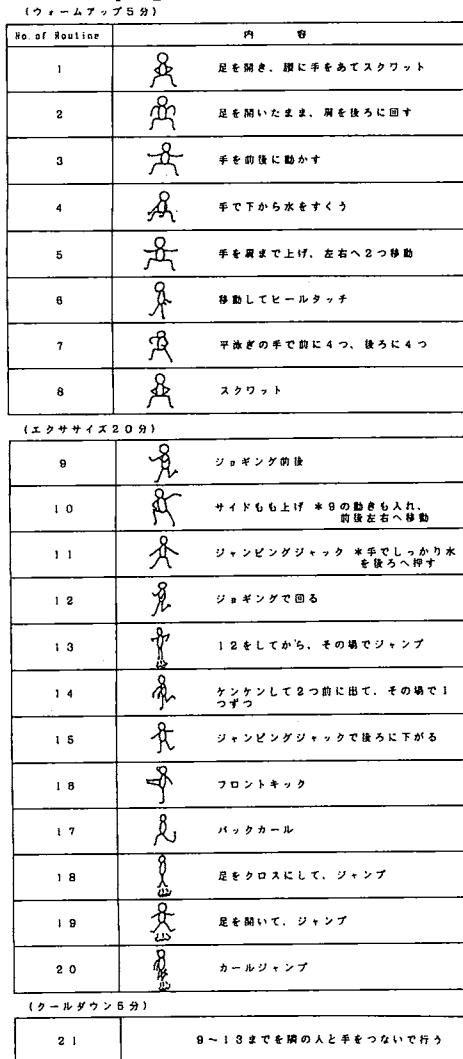 (ウォームアップ5分)
No. of Routine 内 容
1 足を開き、腰に手をあてスクワット
2 足を開いたまま、肩を後ろに回す
3 手を前後に動かす
4 手で下から水をすくう
5 手を肩まで上げ、左右へ2つ移動
6 移動してヒールタッチ
7 平泳ぎの手で前に4つ、後ろに4つ
8 スクワット
(エクササイズ20分)
9 ジョギング前後
10 サイドもも上げ *9の動きも入れ、
前後左右へ移動
11 ジャンピングジャック *手でしっかり水
を後ろへ押す
12 ジョギングで回る
13 12をしてから、その場でジャンプ
14 ケンケンして2つ前に出て、その場で1
つずつ
15 ジャンピングジャックで後ろに下がる
16 フロントキック
17 バックカール
18 足をクロスにして、ジャンプ
19 足を開いて、ジャンプ
20 カールジャンプ
(クールダウン5分)
21 9~13までを隣の人と手をつないで行う